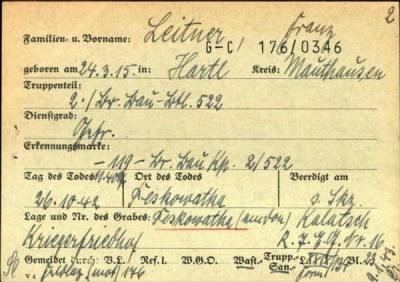 2
Familien- u. Vorname: Leitner, Franz
G-C/ 176/0346
geboren am 24.3.15. in: Hartl Kreis: Mauthausen
Truppenteil:
2./Br. Bau-Btl. 522
Dienstgrad:
Gefr.
Erkennungsmarke:
-119- Br. Bau Kp. 2/522
Tag des Todes Ort des Todes Beerdigt am
26.10.42 Peskowatka s. Skz.
Lage und Nr. des Grabes: Peskowatka Kalatsch
Kriegerfriedhof R. J. G. Nr. 16
Gemeldet durch: V.L. Ref. I. W.G.O. Wast.- Trupp.- San.- Bl. 23
Feldlaz. (mot) 176